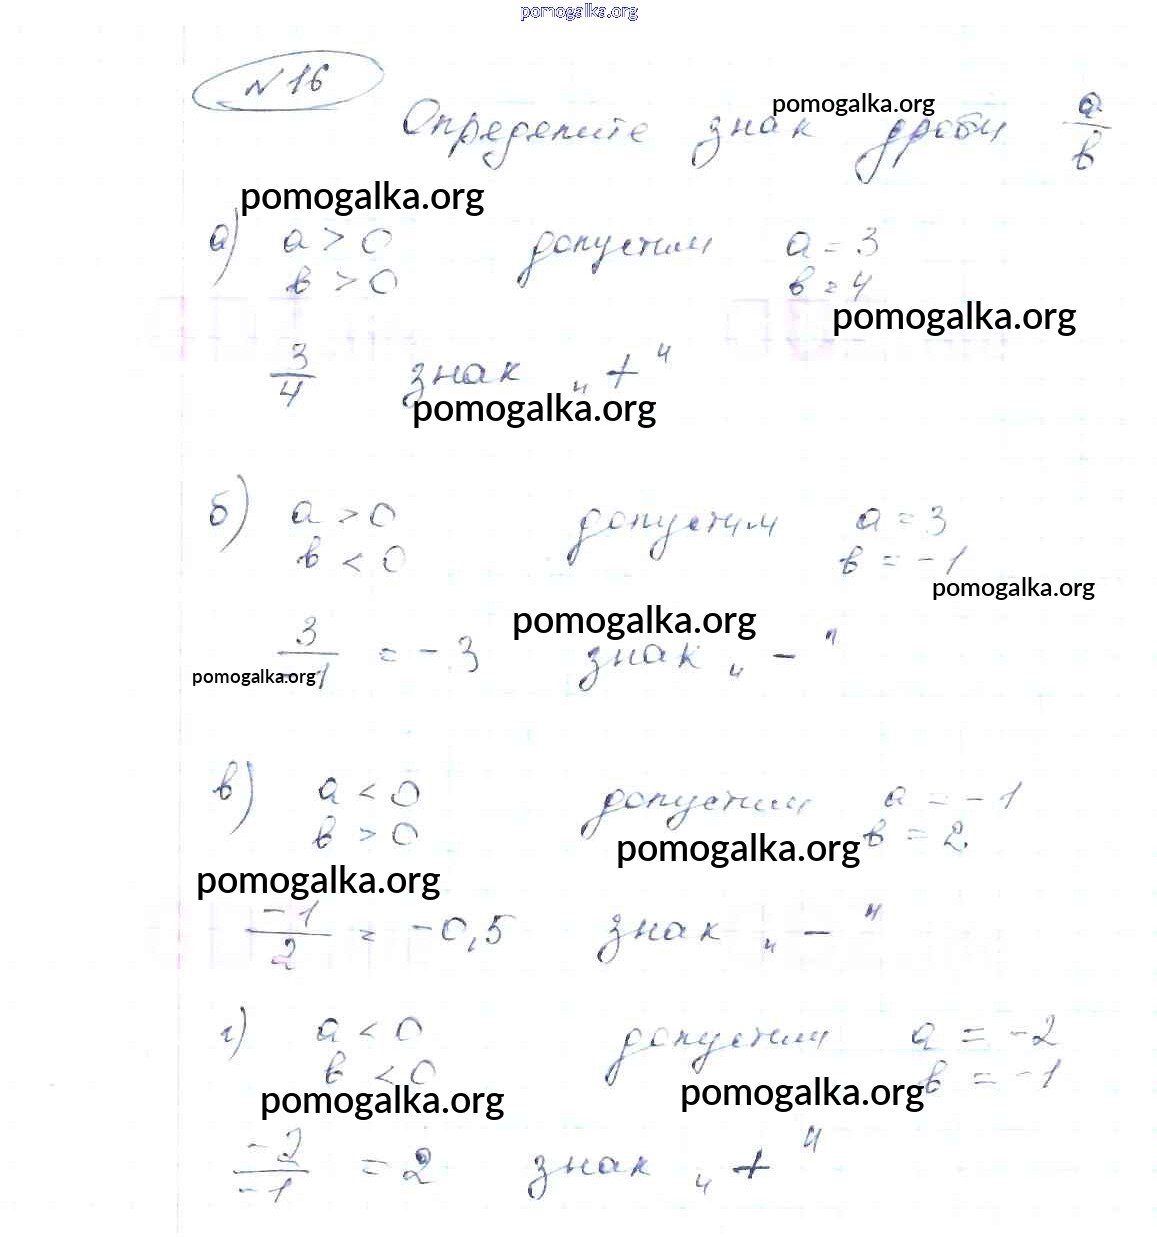 pomogalka.org
N 16
pomogalka.org
Определите знак дроби a/b
pomogalka.org
а) a > 0 допустим a = 3
b > 0 b = 4
pomogalka.org
3/4 знак „+"
pomogalka.org
б) a > 0 допустим a = 3
b < 0 b = -1
pomogalka.org
pomogalka.org
3/-1 = -3 знак „-"
pomogalka.org
в) a < 0 допустим a = -1
b > 0 b = 2
pomogalka.org
pomogalka.org
-1/2 = -0,5 знак „-"
г) a < 0 допустим a = -2
b < 0 b = -1
pomogalka.org pomogalka.org
-2/-1 = 2 знак „+"